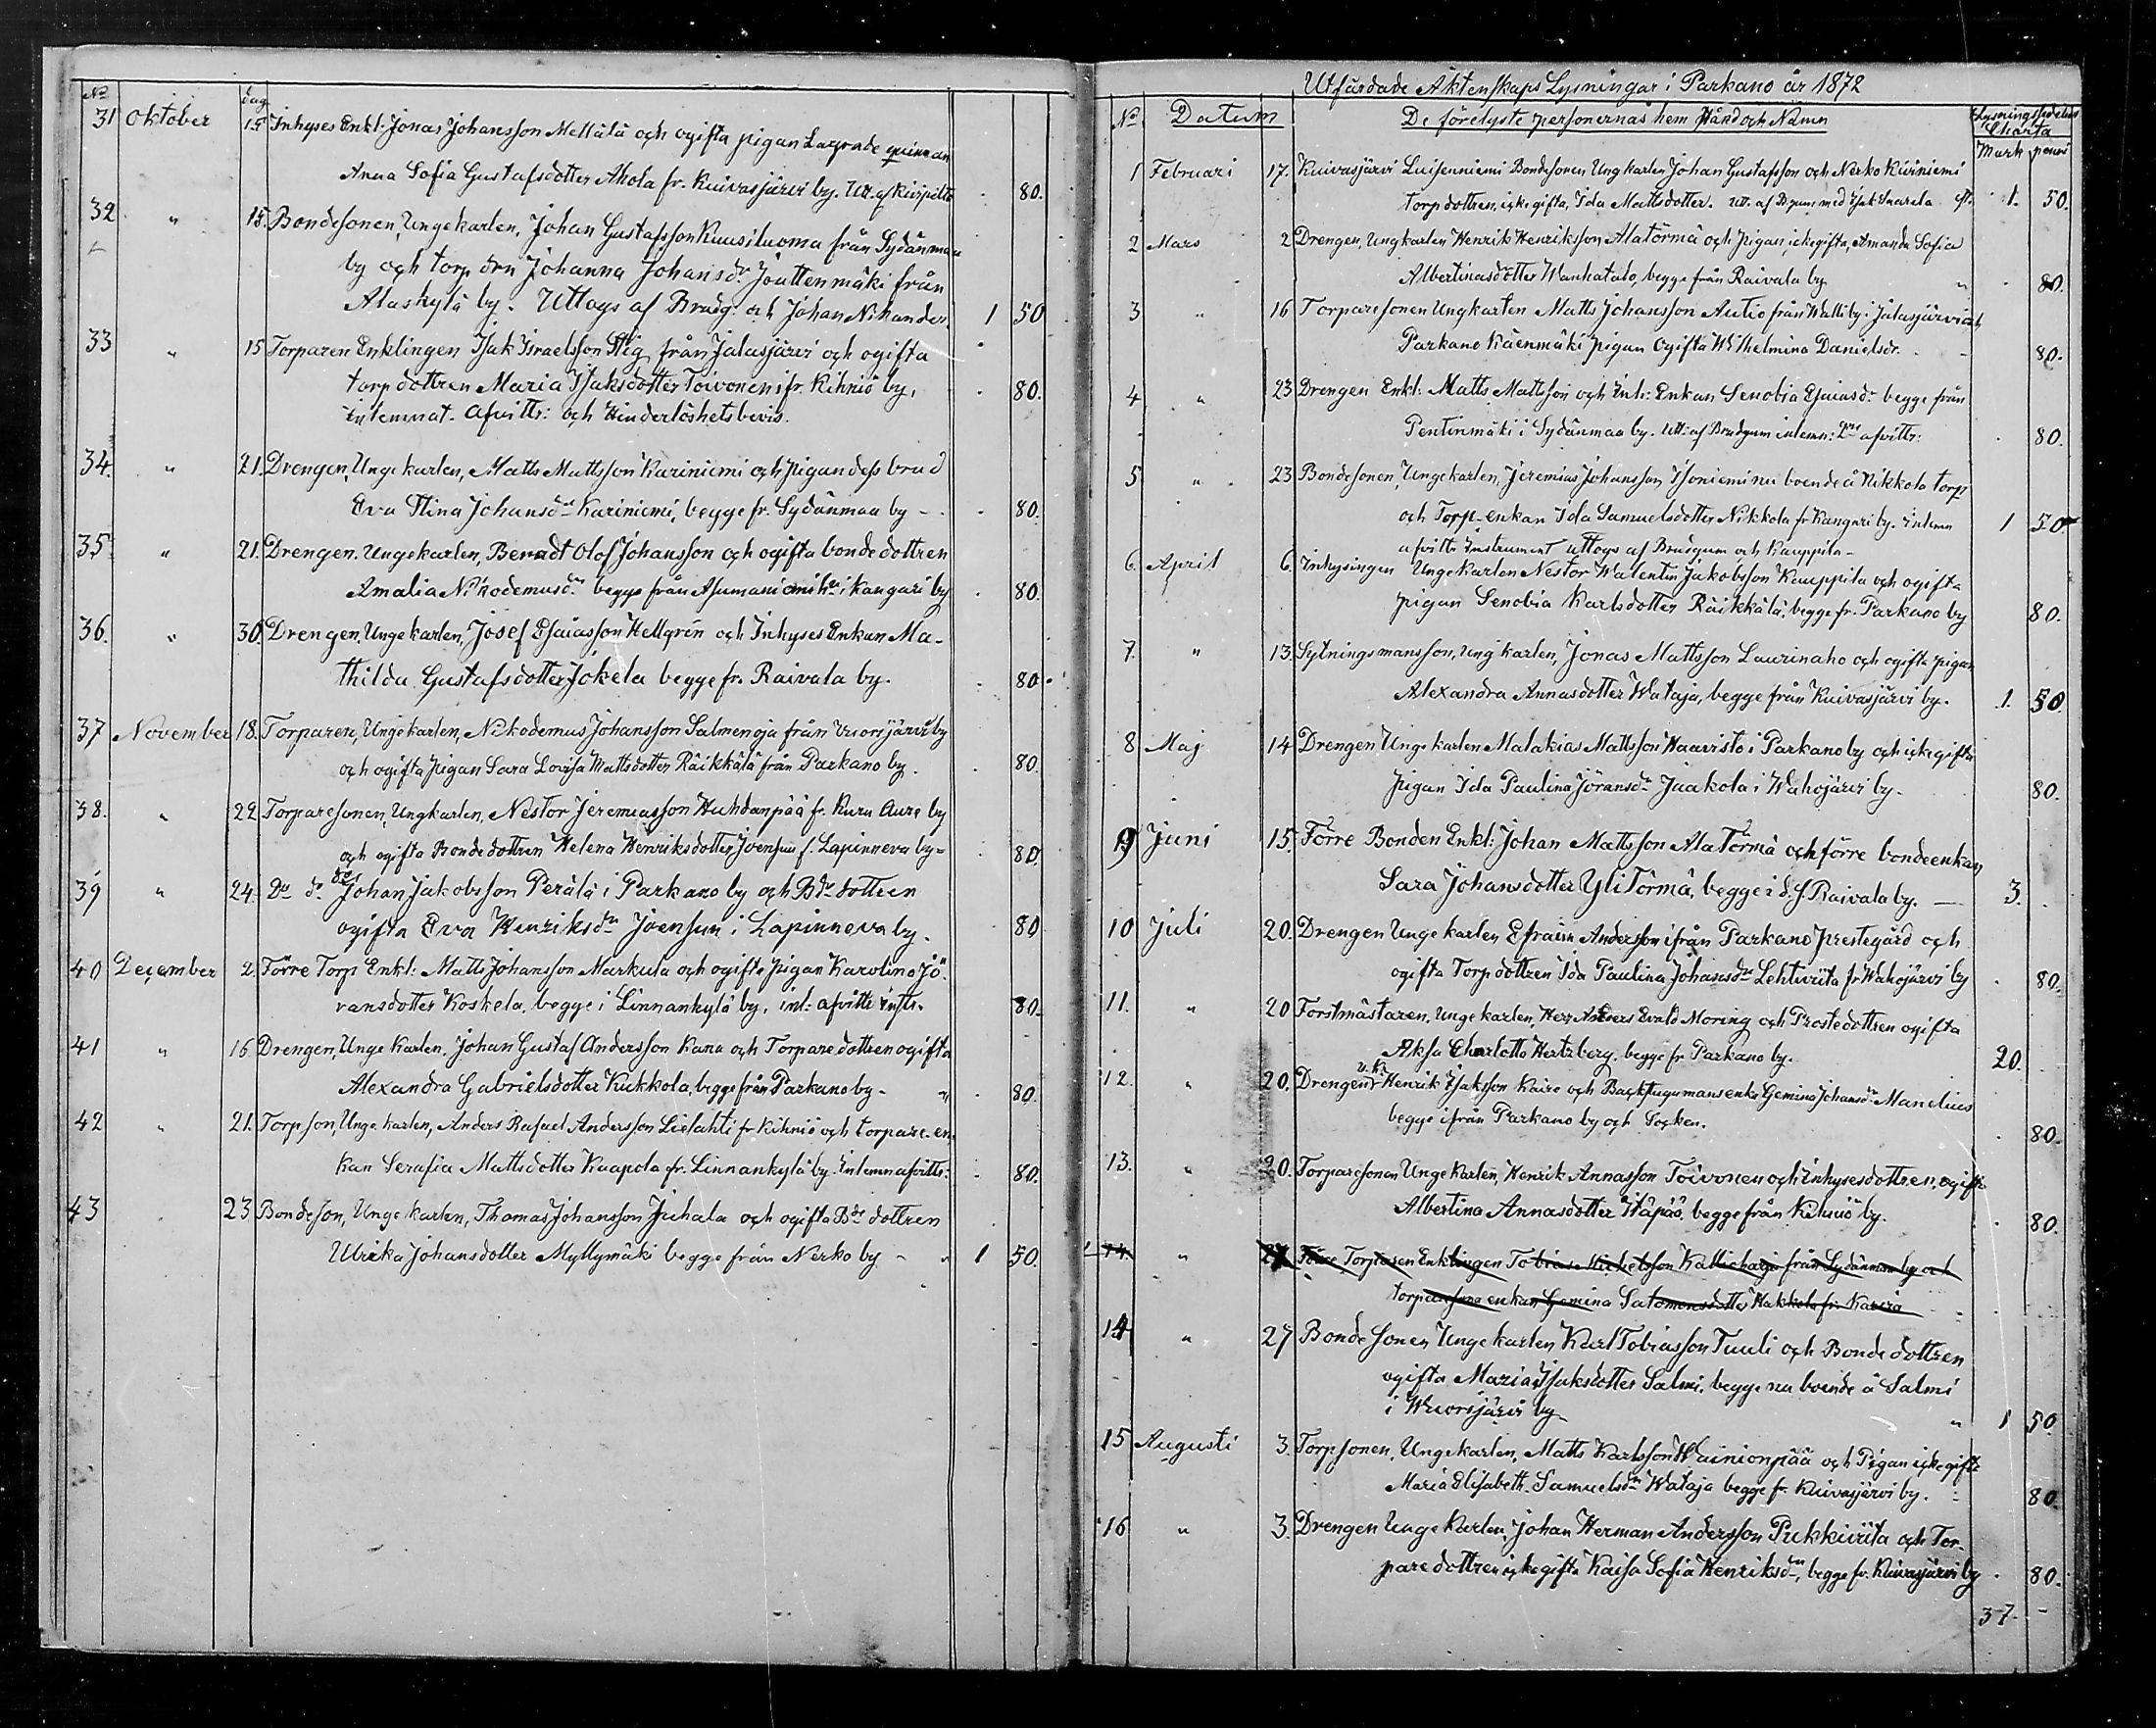 No dag
31 Oktober 15 Inhyses Enkl: Jonas Johansson Mellälä och ogifta pigan Lagrade quinnan
Anna Sofia Gustafsdotter Ahola fr. Kuivasjärvi by. Utt. af Kirspilto - 80.
32 " 15. Bondesonen, Ungekarlen, Johan Gustafsson Kuusiluoma från Sydänmaa
by och torp drn Johanna Johansdr Jouttenmäki från
Alaskylä by. Uttogs af Brudg. och Johan Nikander. 1 50
33 " 15 Torparen Enklingen Isak Israelsson Stig från Jalasjärvi och ogifta
torpdottren Maria Isaksdotter Toivonen ifr. Kihniö by, - 80.
intemnat. afvittr: och Hinderlöshetsbevis.
34. " 21. Drengen, Ungekarlen, Matts Mattsson Kariniemi och pigan dess brud
Eva Stina Johansdr Kariniemi, begge fr. Sydänmaa by - - 80.
35 " 21. Drengen. Ungekarlen, Berndt Olof Johansson och ogifta bondedottren
Amalia Nikodemusdr begge från Asumaniemi hn i Kangari by . 80.
36. " 30. Drengen, Ungekarlen, Josef Esaiasson Hellgrén och Inhyses Enkan Ma-
thilda Gustafsdotter Jokela begge fr. Raivala by. - 80.
37 November 18. Torparen, Ungekarlen, Nikodemus Johansson Salmenoja från Vuorijärvi by
och ogifta pigan Sara Lovisa Mattsdotter Räikkälä från Parkano by. . 80.
38. " 22 Torparesonen, Ungkarlen, Nestor Jeremiasson Huhdanpää f. Kuru Aure by
och ogifta Bondedottren Helena Henriksdotter Joensuu f. Lapinneva by - 80.
39 " 24. Do do do Johan Jakobsson Perälä i Parkano by och Bdedottren
ogifta Eva Henriksdr Joensuu i Lapinneva by. 80
40 December 2. Förre Torp Enkl: Matts Johansson Markula och ogifta pigan Karolina Jö-
ransdotter Koskela, begge i Linnankylä by, inl: afvittr instr. 80.
41 " 16 Drengen, Ungekarlen. Johan Gustaf Andersson Kana och Torparedottren ogifta
Alexandra Gabrielsdotter Kukkola, begge från Parkano by - " . 80.
42 " 21. Torpson, Ungekarlen, Anders Rafael Andersson Lielahti fr Kihniö och torpare-en-
kan Serafia Mattsdotter Kaapola fr. Linnankylä by. Intemn afvittr: - 80.
43 23 Bondeson, Ungekarlen, Thomas Johansson Juhala och ogifta Bdedottren
Ulrika Johansdotter Myllymäki begge från Nerko by - " 1 50.
Utfärdade Äktenskaps Lysningar i Parkano år 1872
No Datum De förelyste personernas hem Wård och Namn Lysningssedelns Charta
Mark penni
1 Februari 17. Kuivasjärvi Luisenniemi Bondesonen Ungkarlen Johan Gustafsson och Nerko Kiviniemi
torpdottren, ickegifta, Ida Mattsdotter. Utt. af Brgum med Isak Inarela 1. 50.
2 Mars 2 Drengen, Ungkarlen Henrik Henriksson Alatörmä och pigan, ickegifta, Amanda Sofia
Albertinasdotter Wanhatalo, begge från Raivala by. " 80.
3 " 16 Torparesonen Ungkarlen Matts Johansson Autio från Walli by i Jalasjärvi och
Parkano Käenmäki pigan ogifta Wilhelmina Danielsdr. - 80.
4 " 23 Drengen Enkl: Matts Mattsson och Inh: Enkan Senobia Esaiasdr begge från
Pentinmäki i Sydänmaa by. Utt: af Brudgum intemn: 2ne afvittr: . 80.
5 " 23 Bondesonen, Ungekarlen, Jeremias Johansson Isoniemi nu boende å Nikkola torp
och Torp-enkan Ida Samuelsdotter Nikkola fr Kangari by. Intemn 1 50
afvittr Instrument uttogs af Brudgum och Kauppila -
6. April 6. Inhysingen Ungekarlen Nestor Walentin Jakobsson Kauppila och ogifta
pigan Senobia Karlsdotter Räikkälä, begge fr. Parkano by 80.
7. " 13. Sytningsmansson, Ungkarlen, Jonas Mattsson Laurinaho och ogifta pigan
Alexandra Annasdotter Wataja, begge från Kuivasjärvi by. 1. 50.
8 Maj 14 Drengen Ungekarlen Malakias Mattsson Haavisto i Parkano by och ickegifta
pigan Ida Paulina Jöransdr Jaakola i Wahojärvi by. 80.
9 Juni 15. Förre Bonden Enkl: Johan Mattsson Ala Törmä och förre bondeenkan
Sara Johansdotter Yli Törmä, begge i d. f. Raivala by. 3.
10 Juli 20. Drengen Ungekarlen Efraim Andersson ifrån Parkano prestegård och
ogifta Torpdottren Ida Paulina Johansdr Lehtiviita fr Wahojärvi by . 80.
11. " 20 Forstmästaren, Ungekarlen, Herr Anders Evald Moring och Prostedottren ogifta
Aksa Charlotta Hertzberg, begge fr Parkano by. 20.
12. " 20. Drengen u.k. Henrik Isaksson Kairo och Backstugumansenka Gemina Johansdr Manelius
begge ifrån Parkano by och Socken. 80.
13. " 20. Torparesonen Ungekarlen, Henrik Annasson Toivonen och Inhysesdottren, ogifta
Albertina Annasdotter Yläpää, begge från Kihniö by. 80.
14. " 27 Förre Torparen Enklingen Tobias Michelsson Kallioharju från Sydänmaa by och
torparesona enkan Gemina Salomonsdotter Hakkola fr. Kavira
14 " 27 Bondesonen Ungekarlen Karl Tobiasson Tuuli och Bondedottren
ogifta Maria Isaksdotter Salmi, begge nu boende å Salmi
i Wuorijärvi by " 1 50
15 Augusti 3. Torpsonen, Ungekarlen, Matts Karlsson Wainionpää och Pigan ickegifta
Maria Elisabeth Samuelsdr Wataja begge fr. Kuivasjärvi by. 80.
16 " 3. Drengen Ungekarlen, Johan Herman Andersson Pukkiviita och Tor-
paredottren ickegifta Kaisa Sofia Henriksdr, begge fr. Kuivasjärvi by . 80.
37. -